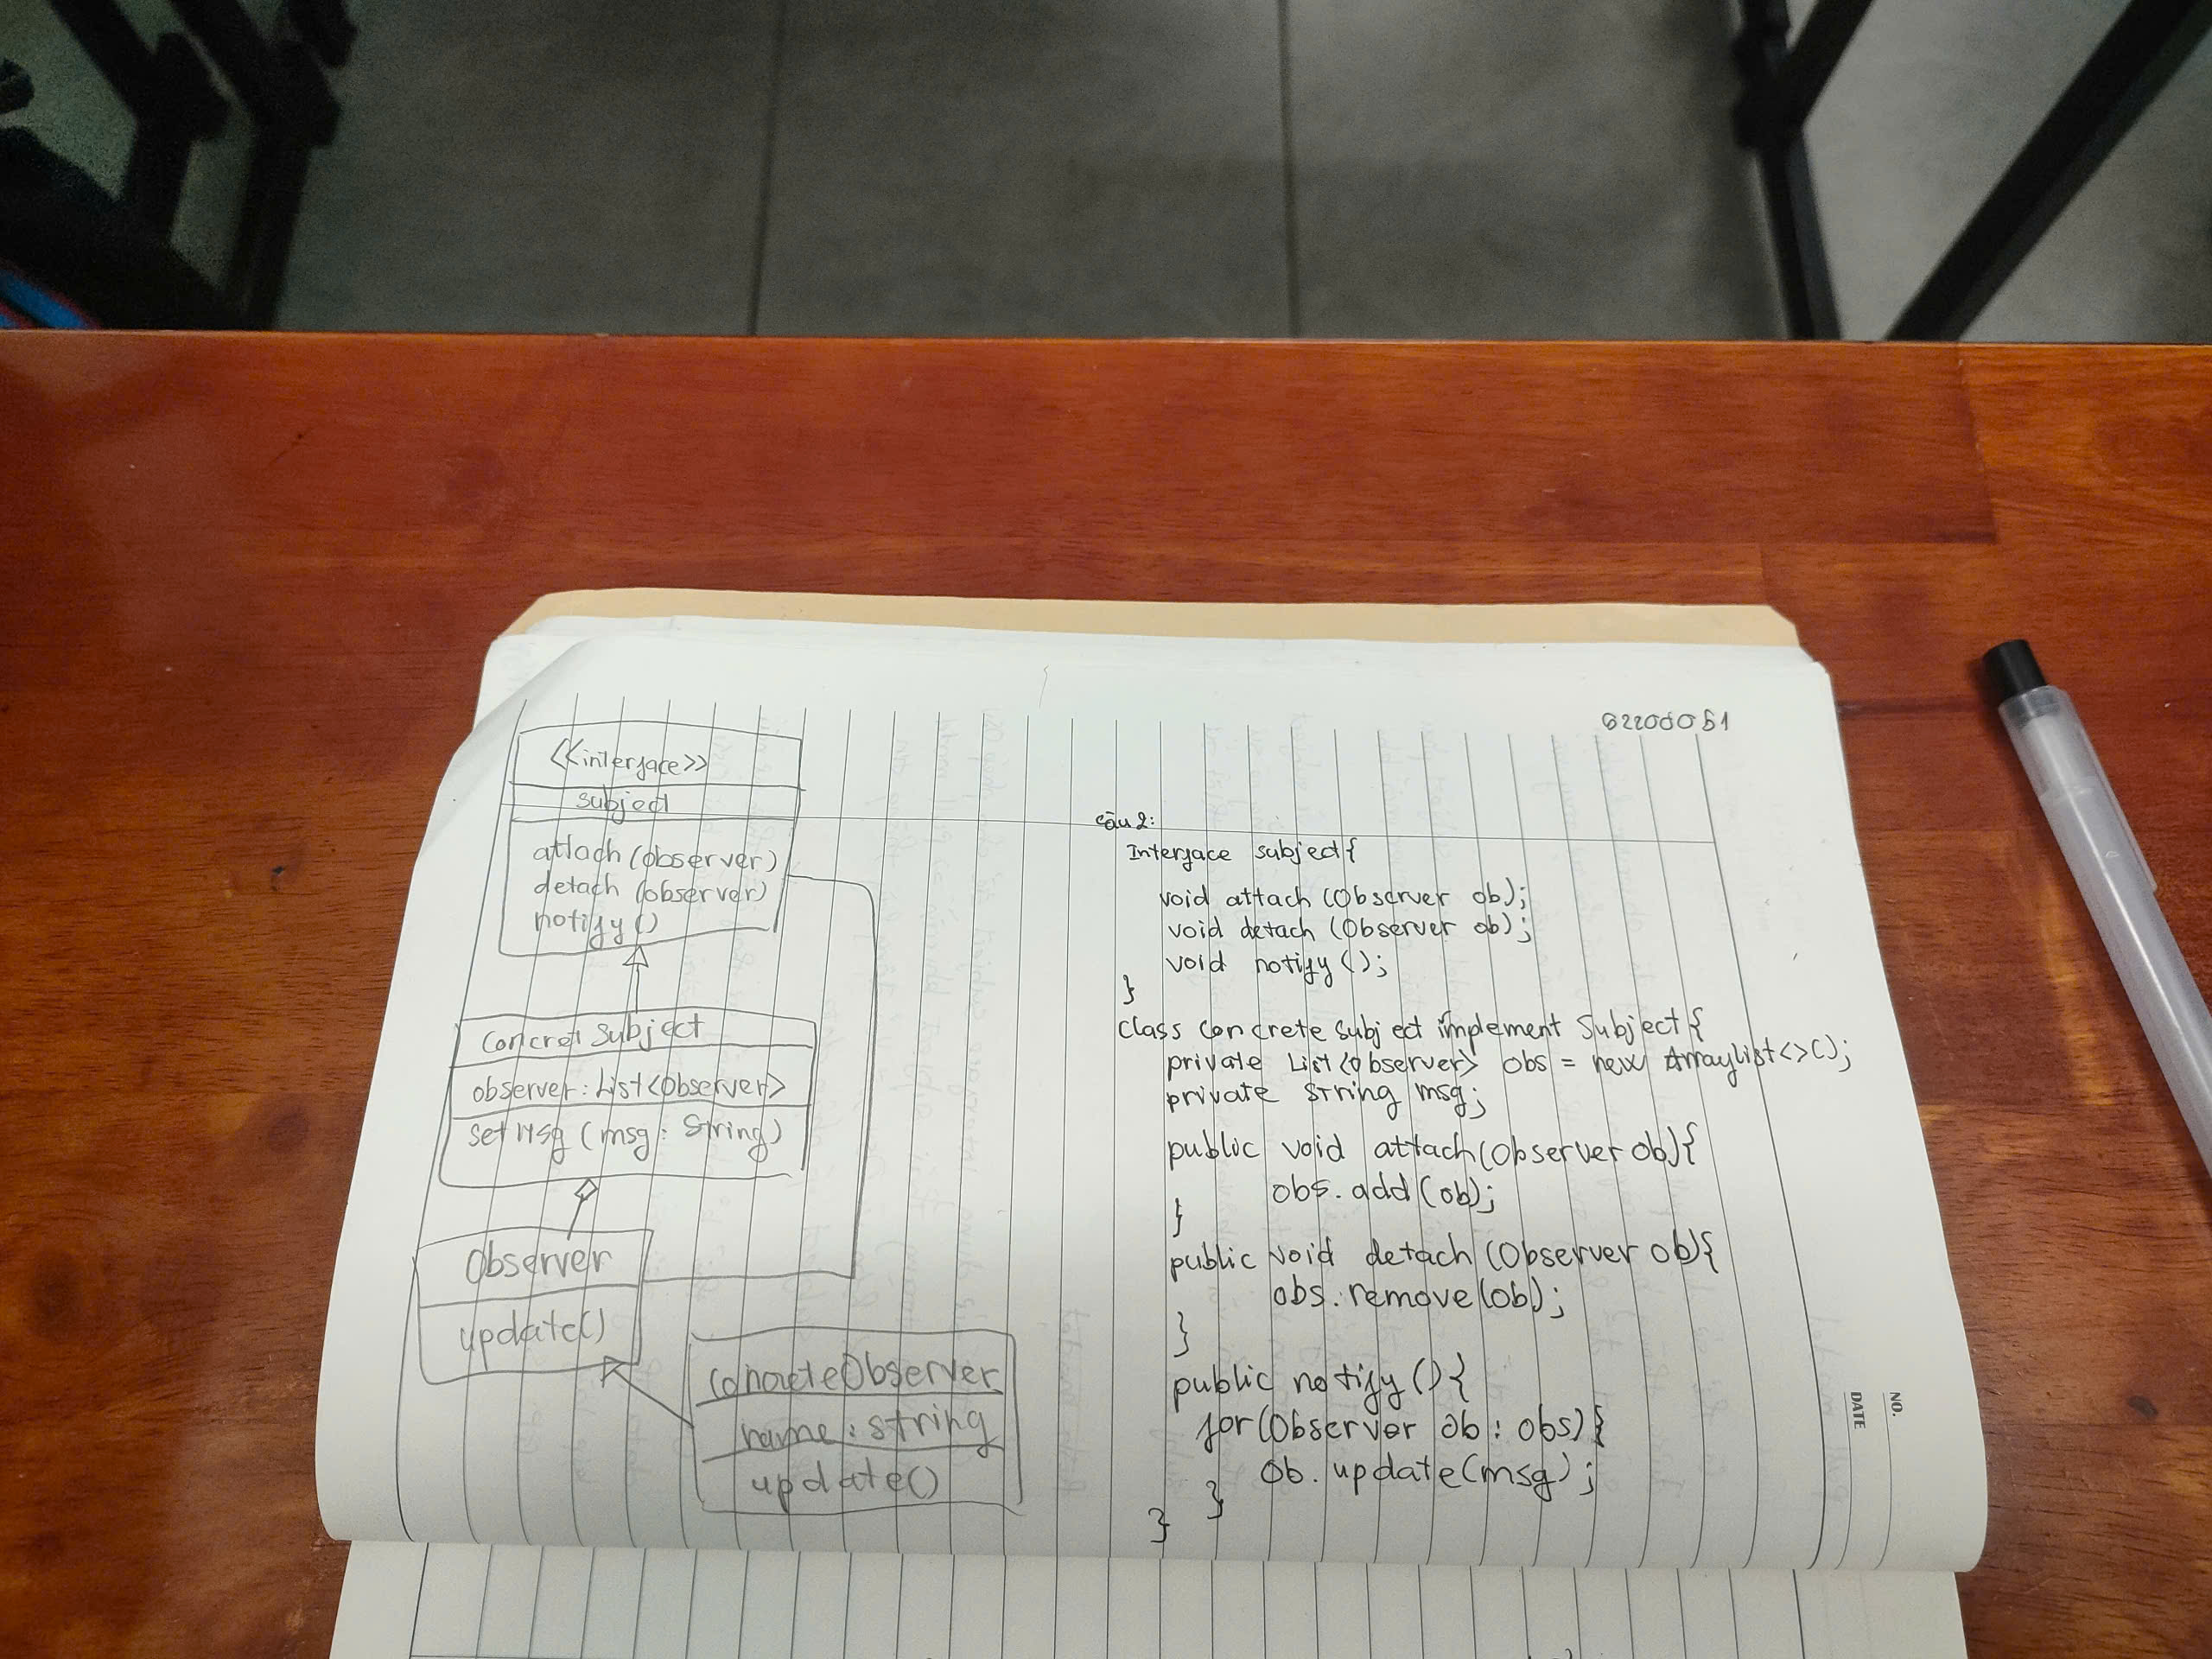 <<interface>>
subject
attach (observer)
detach (observer)
notify ()
Concret Subject
observer: List<Observer>
set Msg (msg: String)
Observer
update()
ConcreteObserver
name: string
update()
62200051
Câu 2:
Interface subject{
void attach (Observer ob);
void detach (Observer ob);
void notify ();
}
Class Concrete Subject implement Subject {
private List<Observer> obs = new Arraylist<>();
private String msg;
public void attach(Observer ob){
obs.add(ob);
}
public void detach (Observer ob){
obs.remove(ob);
}
public notify (){
for(Observer ob : obs){
ob.update(msg);
}
}
NO.
DATE